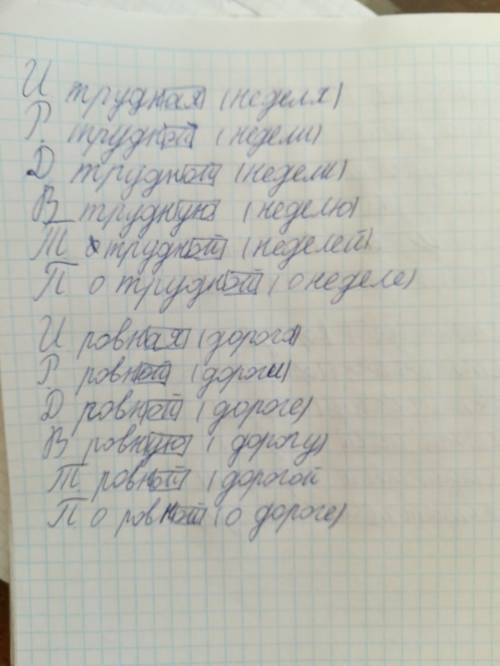 И трудная (неделя)
Р. трудной (недели)
Д трудной (недели)
В трудную (неделю)
Т трудной (неделей)
П о трудной (о неделе)
И ровная (дорога)
Р ровной (дороги)
Д ровной (дороге)
В ровную (дорогу)
Т ровной (дорогой
П о ровной (о дороге)